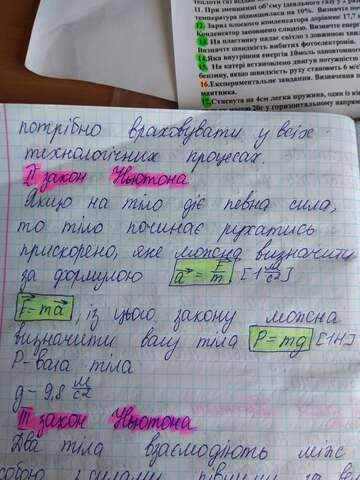 теплоти газ
11. При зменшенні об'єму ідеального газу у 2 рази
температура підвищилася на 10%. Визначте
12. Заряд плоского конденсатора дорівнює 17,7
Конденсатор заповнено слюдою. Визначте
13. На пластинку падає світло з довжиною
Визначте швидкість вибитих фотоелектронів.
14. Яка внутрішня енергія 10моль одноатомного
15. На катері встановлено двигун потужністю
бензину, якщо швидкість руху становить 6 м/с
16. Експериментальне завдання. Визначення
маятника.
17. Стиснута на 4см легка пружина, один із
масою 20г у горизонтальному
потрібно враховувати у всіх
технологічних процесах.
II закон Ньютона
Якщо на тіло діє певна сила,
то тіло починає рухатись
прискорено, яке можна визначити
за формулою a⃗ = F⃗/m [1 м/с2]
F⃗ = ma⃗, із цього закону можна
визначити вагу тіла P = mg [1Н]
P - вага тіла
g - 9,8 м/с2
III закон Ньютона
Два тіла взаємодіють між
собою з силами, рівними за